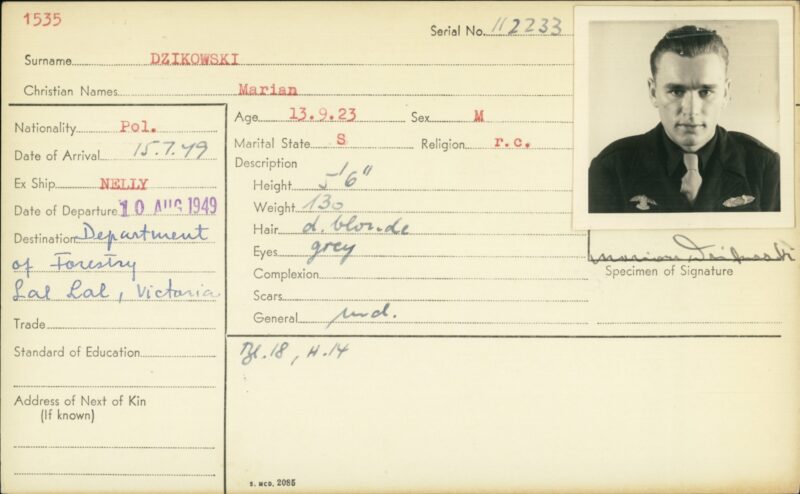 1535
Serial No. 112233
Surname DZIKOWSKI
Christian Names Marian
Nationality Pol.
Date of Arrival 15.7.49
Ex Ship NELLY
Date of Departure 10 AUG 1949
Destination Department
of Forestry
Lal Lal, Victoria
Trade
Standard of Education
Address of Next of Kin
(If known)
Age 13.9.23 Sex M
Marital State S Religion r.c.
Description
Height 5'6"
Weight 130
Hair d. blonde
Eyes grey
Complexion
Scars
General md.
Bl.18, H.14
Marian Dzikowski
Specimen of Signature
S. MCD. 2085